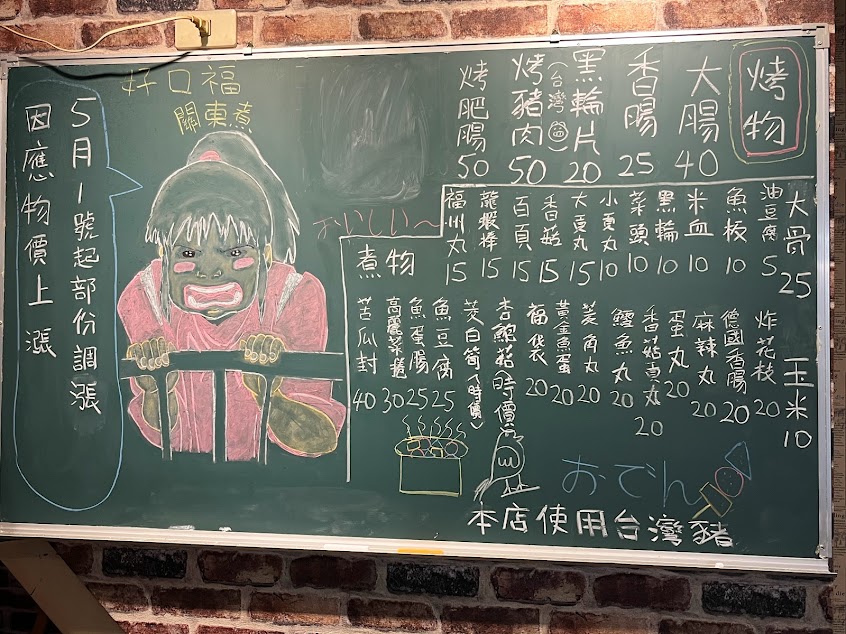 烤物
大腸 40
香腸 25
黑輪片(台灣固) 20
烤豬肉 50
烤肥腸 50
好口福
關東煮
5月1號起部份調漲
因應物價上漲
おいしい~
煮物
大骨 25
油豆腐 5
魚板 10
米血 10
黑輪 10
菜頭 10
小貢丸 10
大貢丸 15
香菇 15
百頁 15
龍蝦棒 15
福州丸 15
玉米 10
炸花枝 20
德國香腸 20
麻辣丸 20
蛋丸 20
香菇貢丸 20
鱈魚丸 20
菱角丸 20
黃金魚蛋 20
福袋 20
杏鮑菇(時價)
茭白筍(時價)
魚豆腐 25
魚蛋腸 25
高麗菜捲 30
苦瓜封 40
おでん
本店使用台灣豬